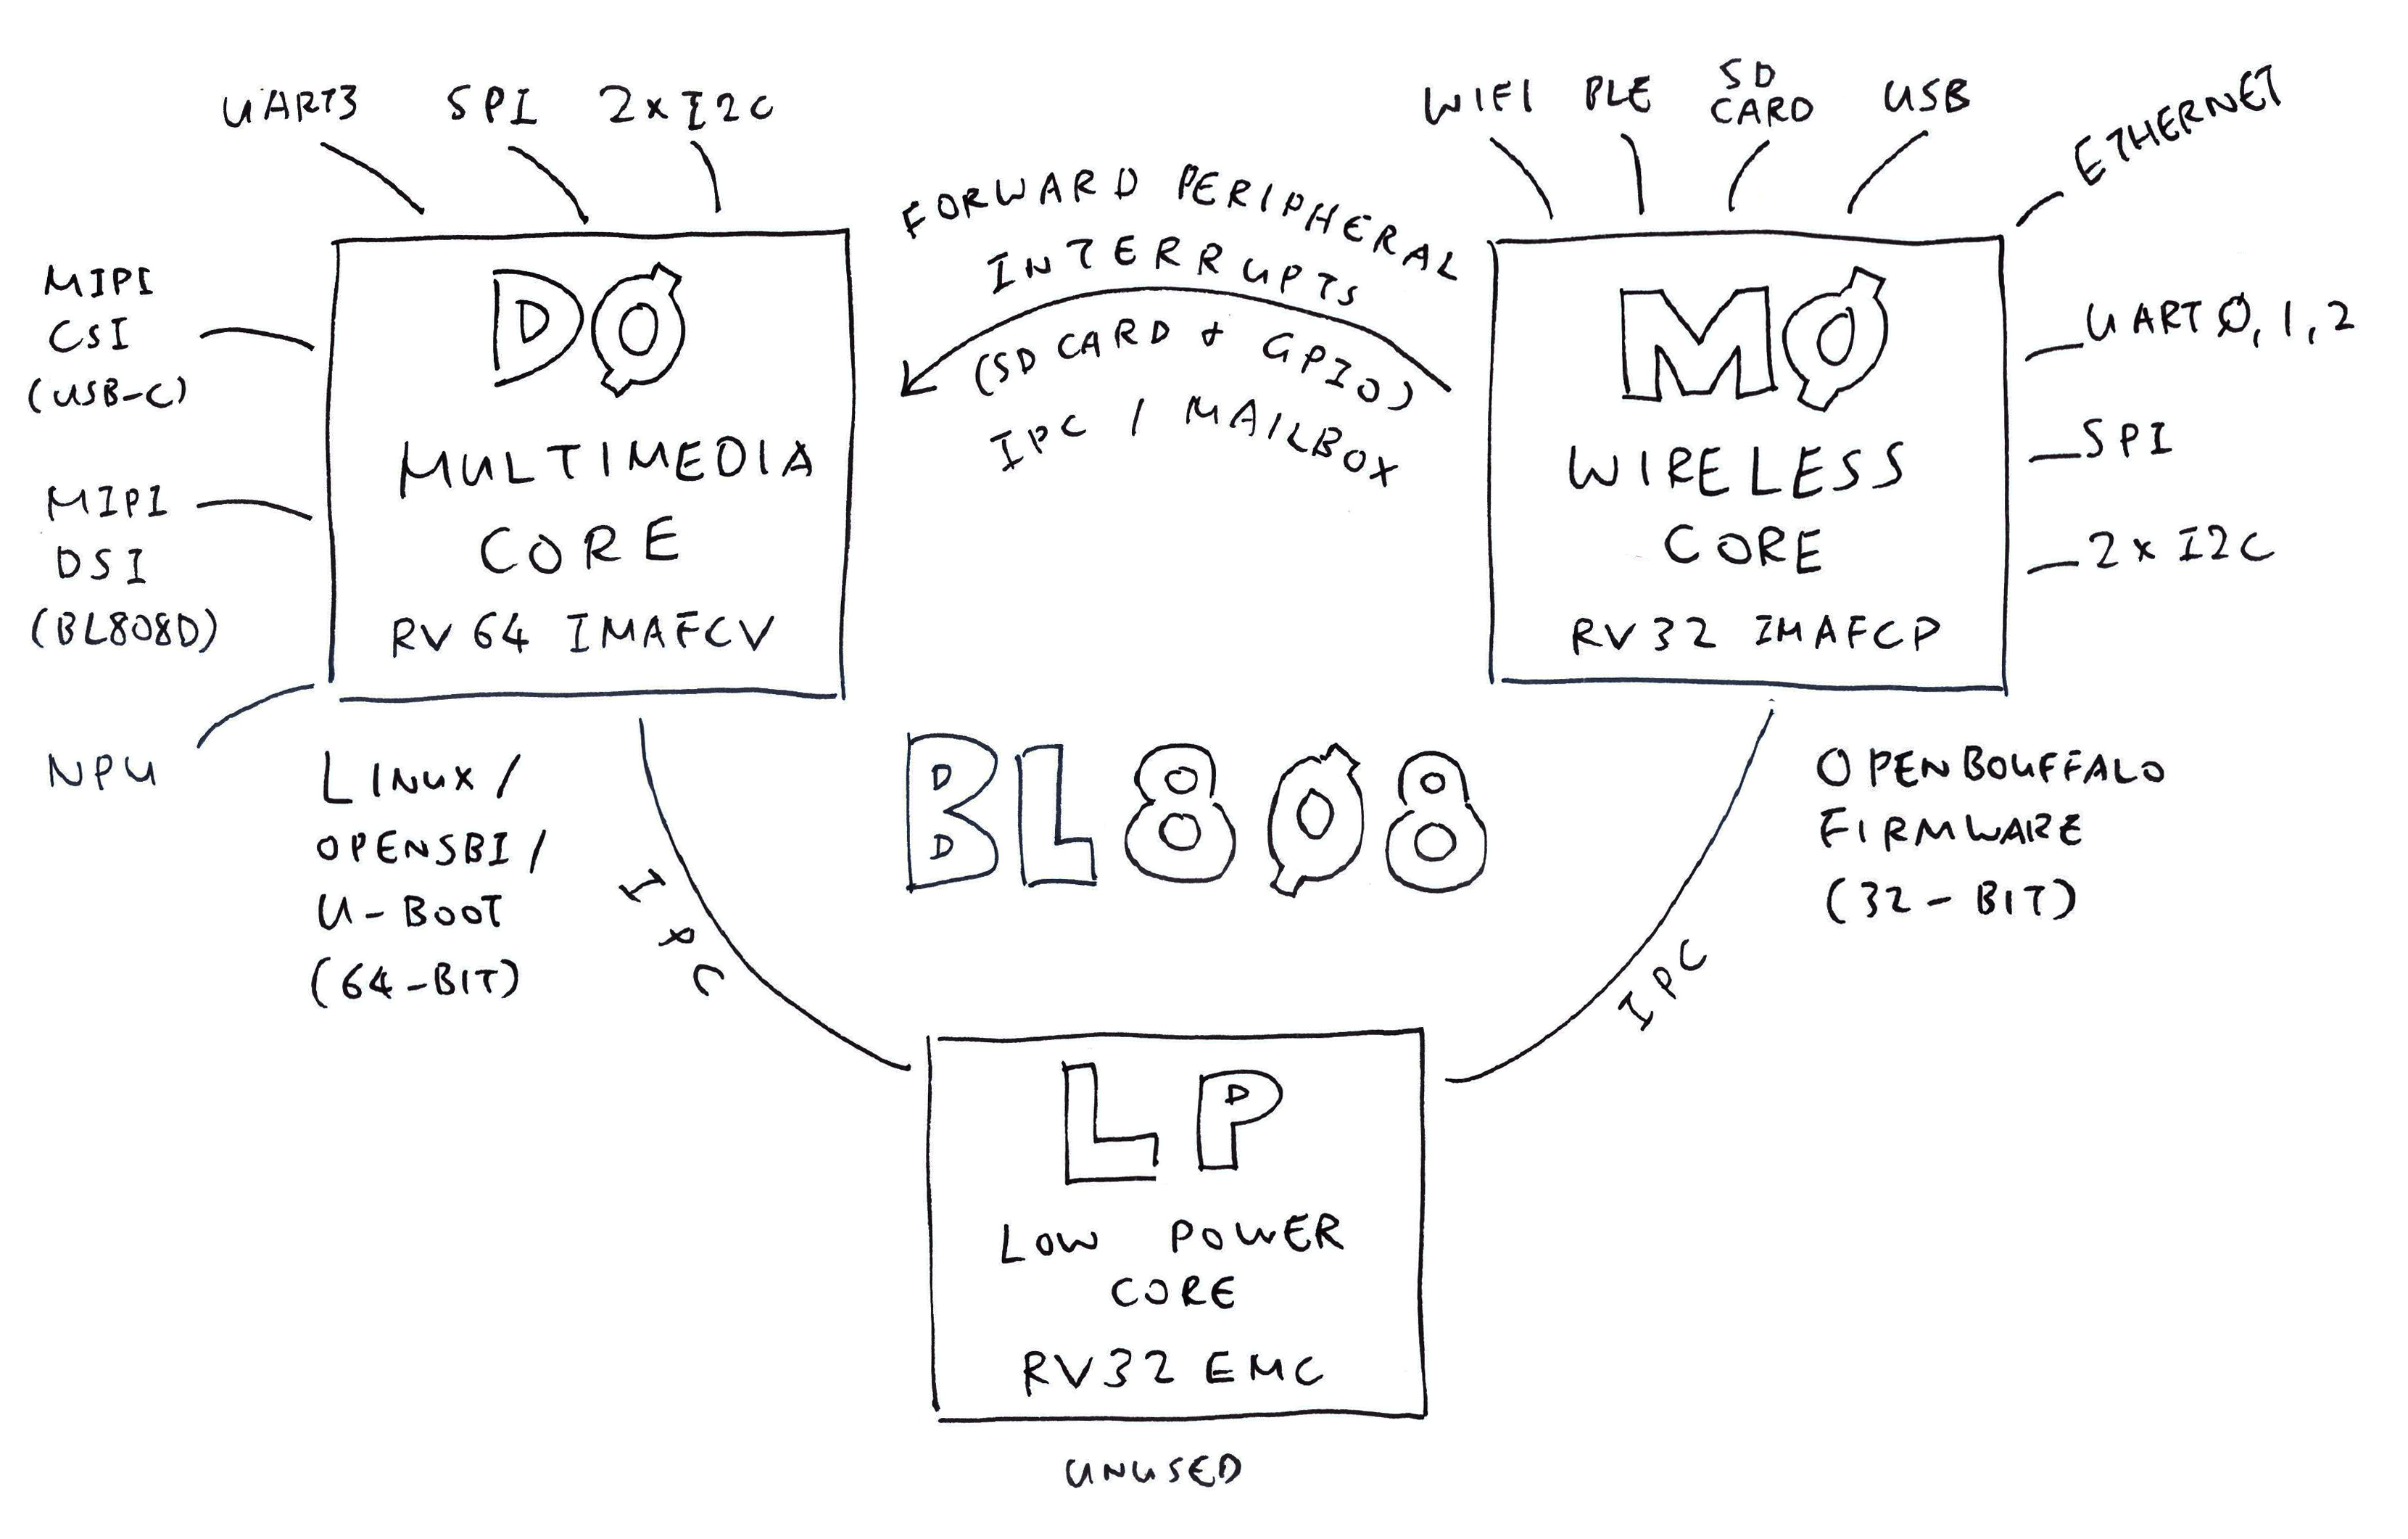 UART3
SPI
2xI2C
MIPI
CSI
(USB-C)
MIPI
DSI
(BL808D)
NPU
DØ
MULTIMEDIA
CORE
RV64 IMAFCV
LINUX/
OPENSBI/
U-BOOT
(64-BIT)
FORWARD PERIPHERAL
INTERRUPTS
(SD CARD & GPIO)
IPC / MAILBOX
WIFI
BLE
SD
CARD
USB
ETHERNET
MØ
WIRELESS
CORE
RV32 IMAFCP
UART Ø,1,2
SPI
2x I2C
OPENBOUFFALO
FIRMWARE
(32-BIT)
BL8Ø8
IPC
IPC
LP
LOW POWER
CORE
RV32 EMC
UNUSED